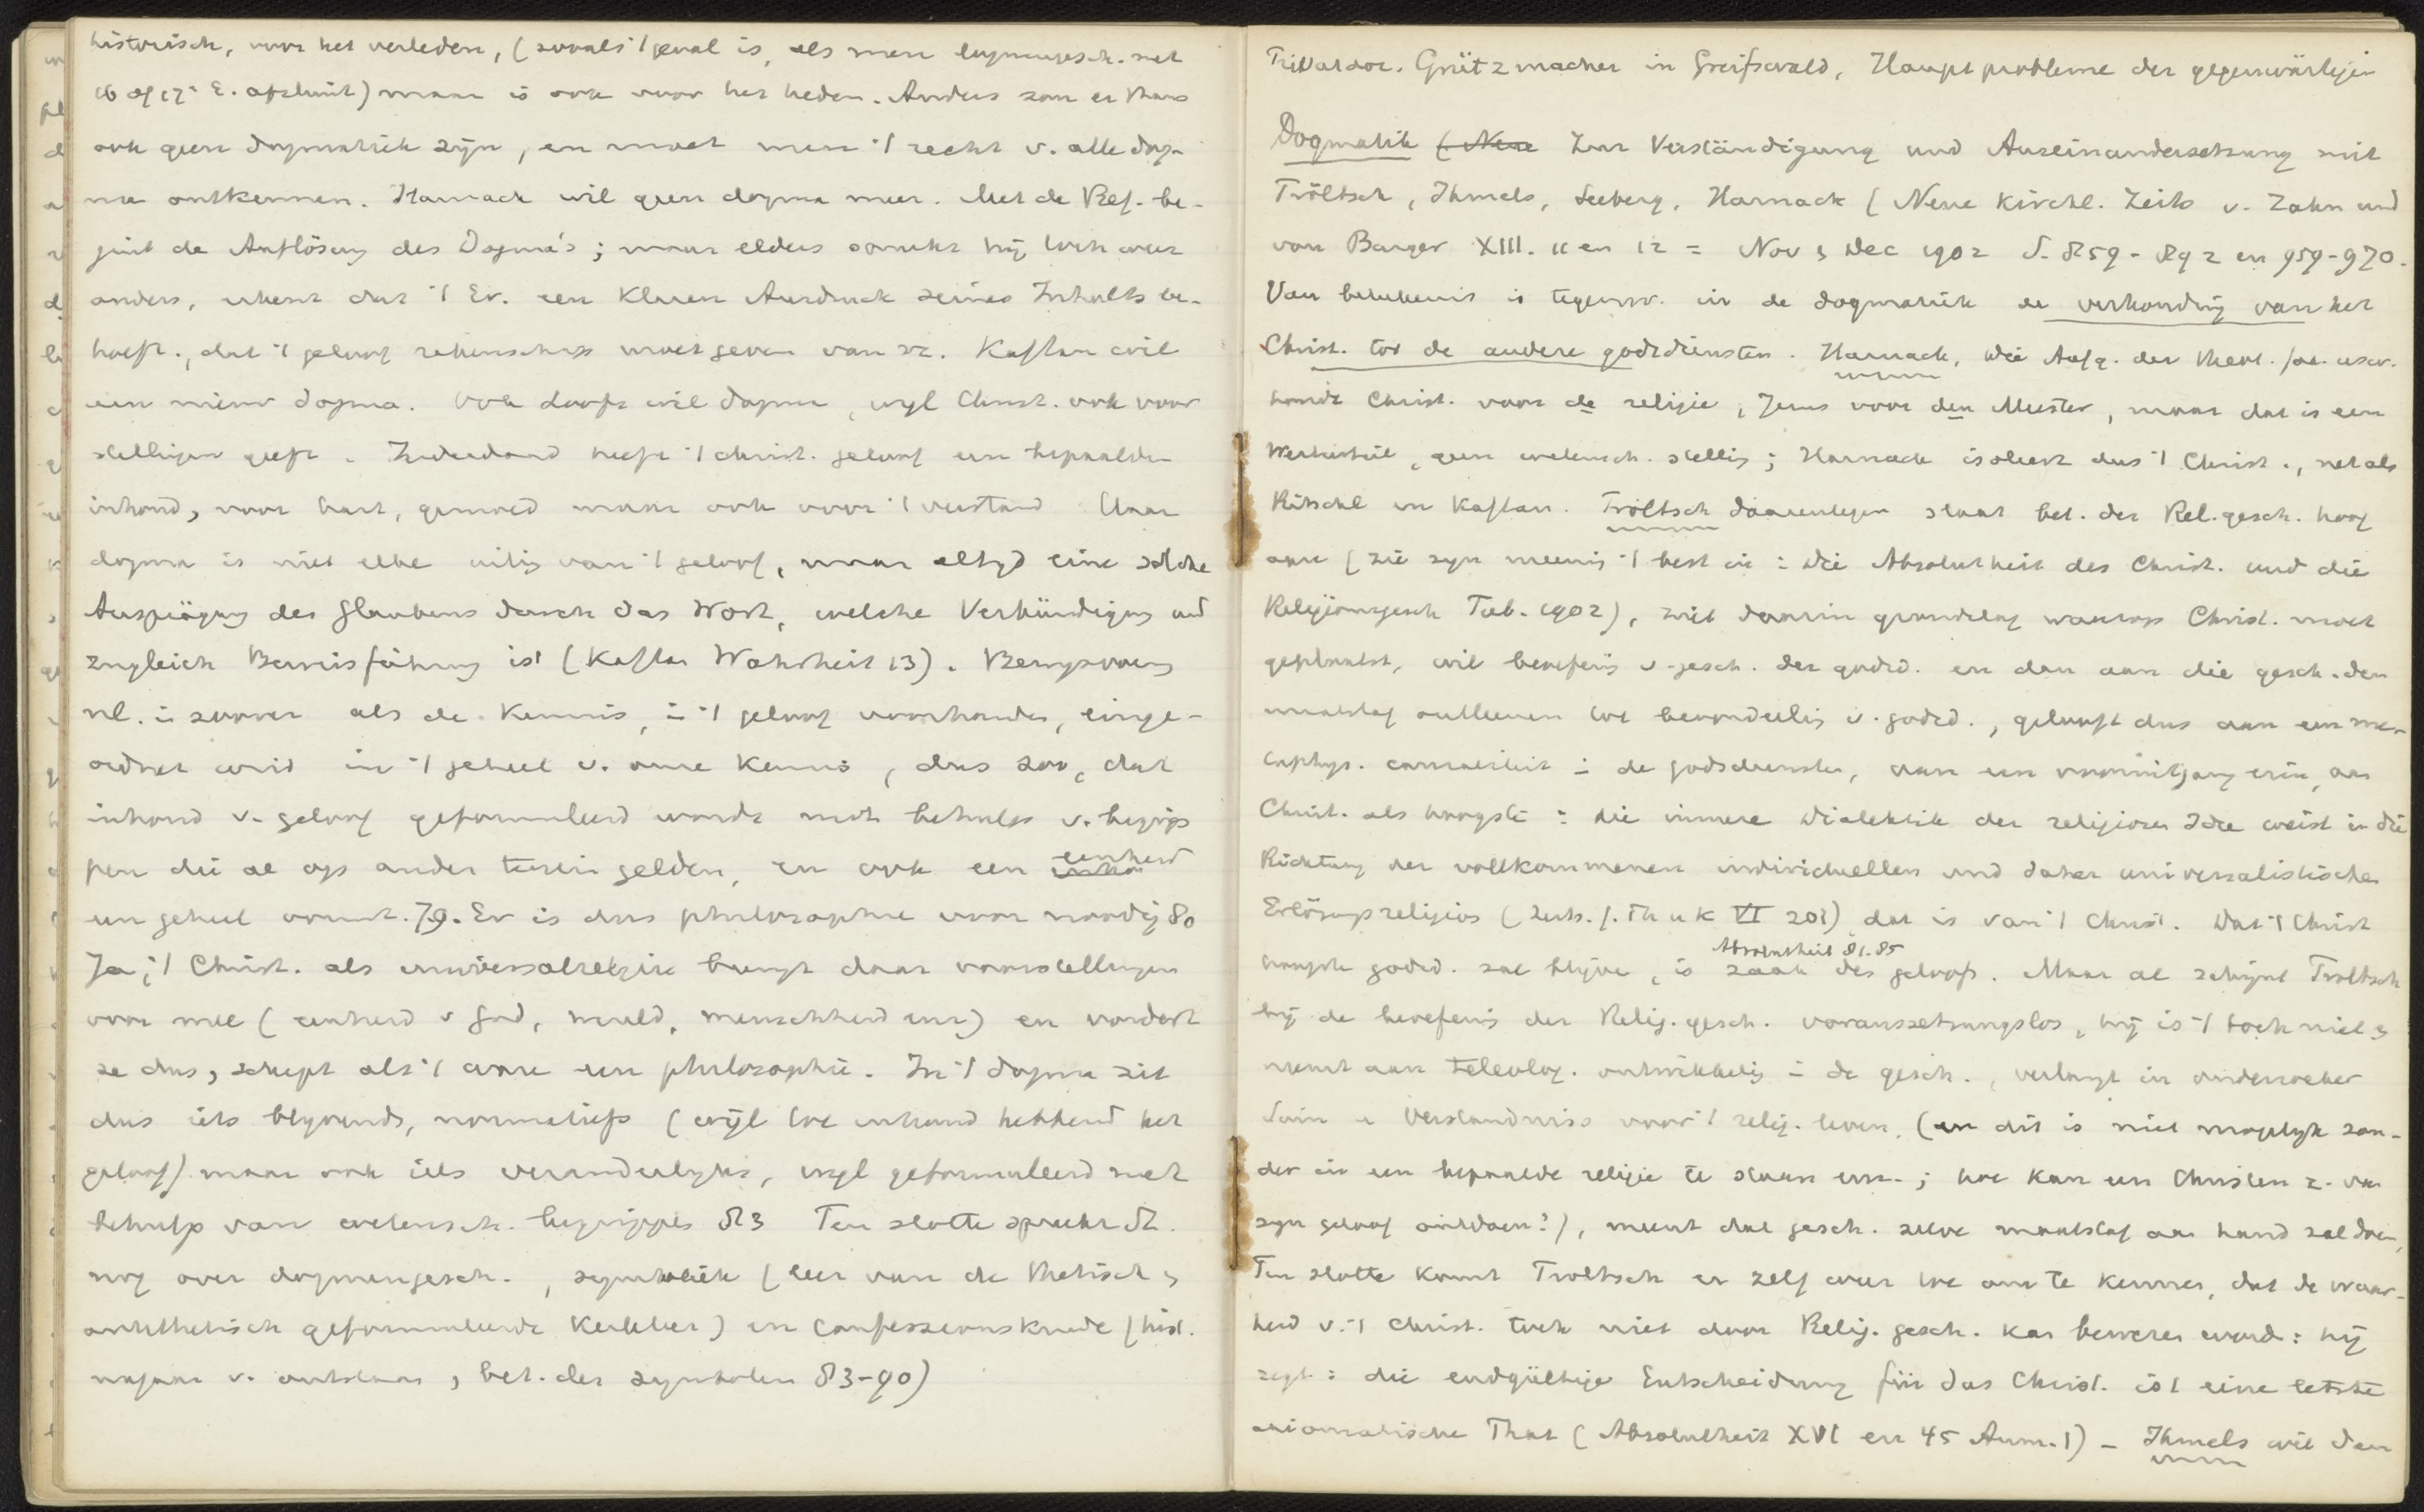 historisch, voor het verleden, (zooals 't geval is, als men dogmengesch. met
16 of 17e E. afsluit) maar is ook voor het heden. Anders zou er thans
ook geen dogmatiek zijn, en moet men 't recht v. alle dog-
ma ontkennen. Harnack wil geen dogma meer. Met de Ref. be-
gint de Auflösung des Dogma's; maar elders spreekt hij toch weer
anders, erkent dat 't Ev. een klaren Ausdruck seines Inhalts be-
hoeft, dat 't geloof rekenschap moet geven van zz. Kaftan wil
een nieuw dogma. Ook wil dogma, wijl Christ. ook voor
stellingen geeft. Inderdaad heeft 't christ. geloof een bepaalden
inhoud, voor hart, gemoed maar ook voor 't verstand Maar
dogma is niet elke uiting van 't geloof, maar altijd eine solche
Ausprägung des Glaubens durch das Wort, welche Verkündigung und
zugleich Beweisführung ist (Kaftan Wahrheit 13). Bewijsvoering
nl. in zoover als de kennis, in 't geloof voorhanden, einge-
ordnet wird in 't geheel v. onze kennis, dus zoo, dat
inhoud v. geloof geformuleerd worde met behulp v. begrip
pen die ae op ander terrein gelden, en ook een eenheid
een geheel vormt. 79. Er is dus philosophie voor noodig 80
Ja, 't Christ. als universalreligie brengt daar voorstellingen
voor mee (eenheid v God, wereld, menschheid enz) en vordert
ze dus, schept als 't ware een philosophie. In 't dogma zit
dus iets blijvends, normatiefs (wijl tot inhoud hebbend het
geloof) maar ook iets veranderlijks, wijl geformuleerd met
behulp van wetensch. begrippen 83 Ten slotte spreekt S.
nog over dogmengesch., symboliek (leer van de thetisch &
antithetisch geformuleerde kerkleer) en Confessionskunde (hist.
nagaan v. ontstaan & bet. der symbolen 83-90)
Privatdoc. Grützmacher in Greifswald, Hauptprobleme der gegenwärtigen
Dogmatik (Neue Zur Verständigung und Auseinandersetzung mit
Tröltsch, Ihmels, Seeberg, Harnack (Neue Kirchl. Zeits v. Zahn und
von Burger XIII. 11 en 12 = Nov & Dec 1902 S. 859-892 en 959-970.
Van beteekenis is tegenw. in de dogmatiek de verhouding van het
Christ. tot de andere godsdiensten. Harnack, Die Aufg. der theol. Fac. usw.
houdt Christ. voor de religie, Jezus voor den Meester, maar dat is een
Werturteil, geen wetensch. stelling; Harnack isoleert dus 't Christ., net als
Ritschl en Kaftan. Tröltsch daarentegen slaat bet. der Rel.gesch. hoog
aan (zie zijn meening 't best in: Die Absolutheit des Christ. und die
Religionsgesch Tüb. 1902), ziet daarin grondslag waarop Christ. moet
geplaatst, wil beoefening v. gesch. der godsd. en dan aan die gesch. den
maatstaf ontleenen tot beoordeeling v. godsd., gelooft dus aan een me-
taphys. in de godsdiensten, aan een vooruitgang erin, aan
Christ. als hoogste: die innere Dialektik der religiösen Idee weist in die
Richtung der vollkommenen individuellen und daher universalistischen
Erlösungsreligion (Zeits. f. Th u K VI 201) dat is van 't Christ. Dat 't Christ
Absolutheit 81.85
hoogste godsd. zal blijven, is zaak des geloofs. Maar al schijnt Tröltsch
bij de beoefening der Relig.gesch. voraussetzungslos, hij is 't toch niet &
neemt aan teleolog. ontwikkeling in de gesch., verlangt in onderzoeker
Sinn u Verständniss voor 't relig. leven, (en dit is niet mogelijk zon-
der in een bepaalde religie te staan enz.; hoe kan een Christen z. van
zijn geloof ontdoen?), meent dat gesch. zelve maatstaf aan hand zal doen,
Ten slotte komt Tröltsch er zelf weer toe om te kennen, dat de waar-
heid v. 't Christ. toch niet door Relig. gesch. kan bewezen word: hij
zegt: die endgültige Entscheidung für das Christ. ist eine letzte
axiomatische That (Absolutheit XVI en 45 Anm. 1) – Ihmels wil den